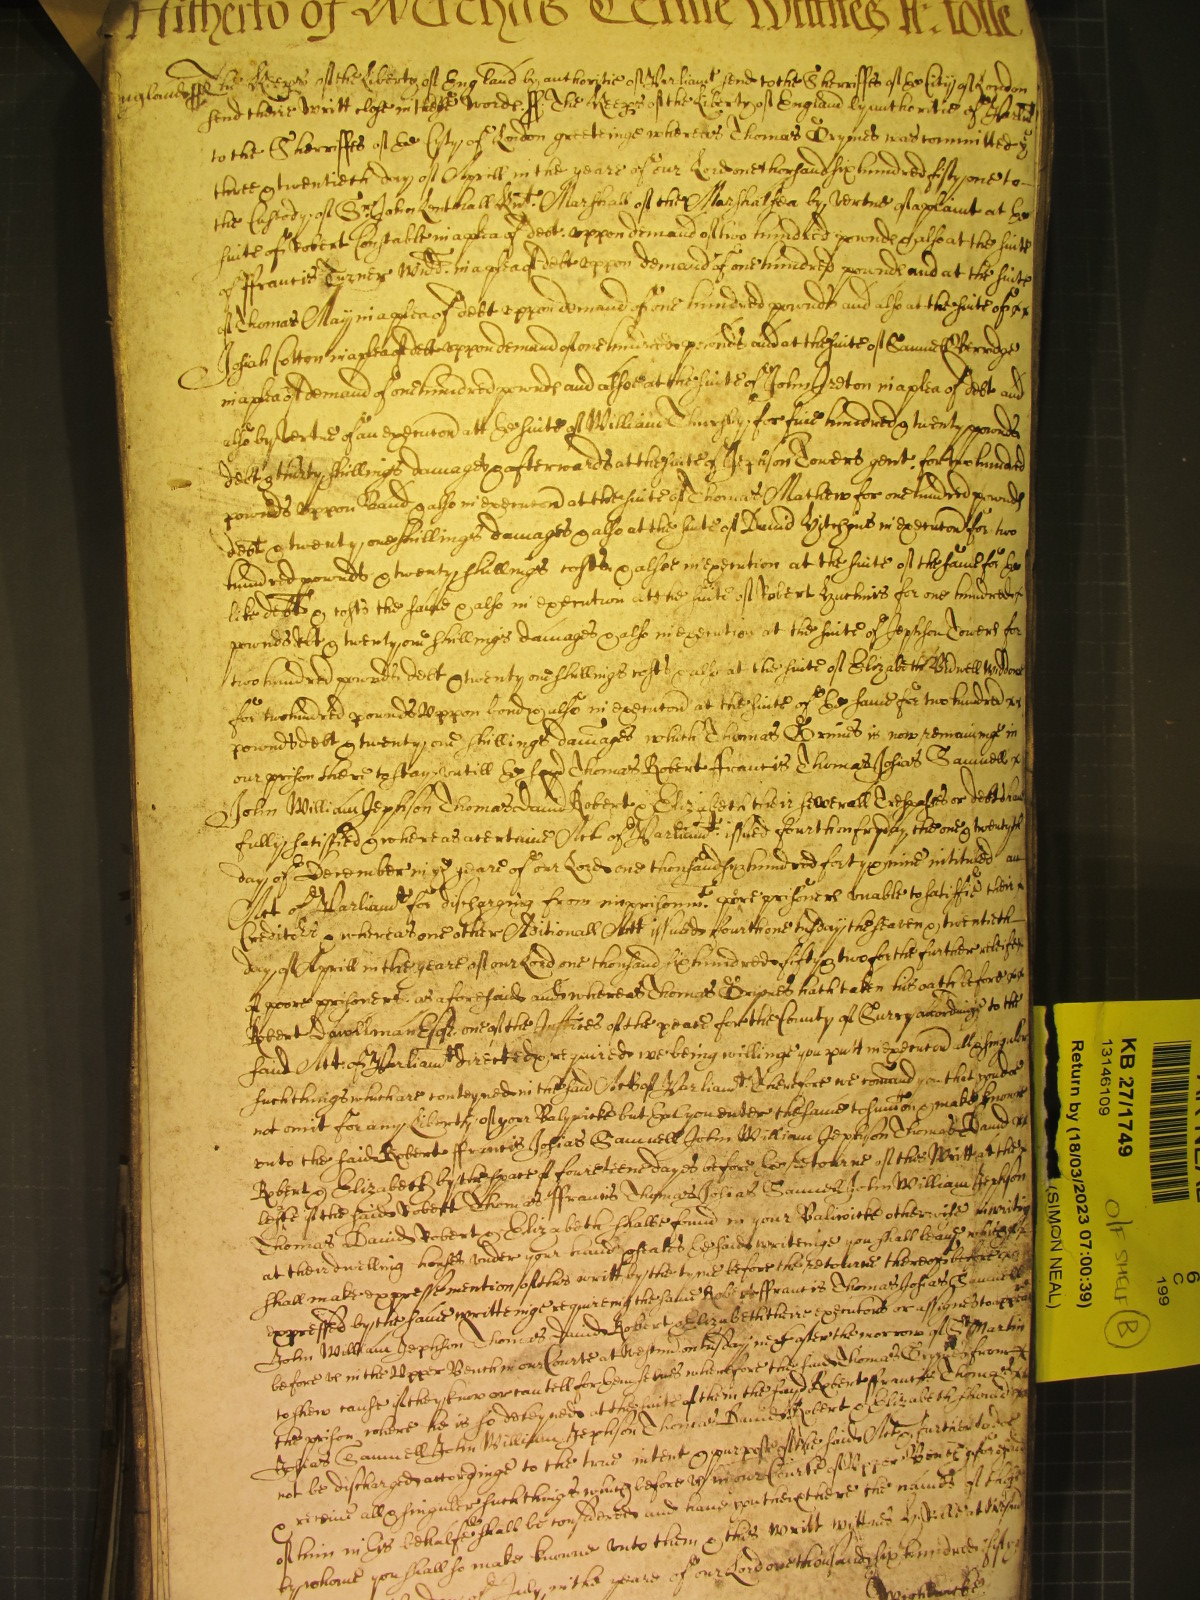 Hitherto of Michas Terme Wittnes H: Rolle
England ss The Keepers of the Liberty of England by authoritie of Parliamt send to the Sherriffes of ye City of London
send there writt close in these words ss The Keeps of the Liberty of England by authoritie of Parliamt
to the Sherriffes of ye Citty of London greetinge whereas Thomas Grymes was committed ye
three & twentieth day of Aprill in the yeare of our Lord one thousand six hundred fifty one to
the Custody of Sr John Lenthall Knt. Marshall of the Marshalsea by vertue of a plaint at ye
suite of Robert Constable in a plea of debt uppon demand of two hundred pownds & also at the suite
of ffrancis Turner Widd. in a plea of debt uppon demand of one hundred pownds and at the suite
of Thomas May in a plea of debt uppon demand of one hundred pownds and also at the suite of
Josiah Cotton in a plea of debt uppon demand of one hundred pownds and at the suite of Samuell Gerridge
in a plea of demand of one hundred pownds and alsoe at the suite of John Ireton in a plea of debt and
also by vertue of an execucon att ye suite of William Thursby for five hundred & twenty pownds
debt & thirty shillings damages & afterwards at the suite of Jephson Towers gent. for two hundred
pownds uppon Band & also in execucon at the suite of Thomas Mathew for one hundred pownds
debt & twenty one shillings damages & also at the suite of David Hitchins in execucon for two
hundred pownds & twenty shillings costs & alsoe in execution at the suite of the same for ye
like debt & costs the same & also in execution at the suite of Robert Huchins for one hundred
pownds debt & twenty one shillings damages & also in execution at the suite of Jephson Towers for
two hundred pownds debt & twenty one shillings costs & also at the suite of Elizabeth Bidwell Widdow
for two hundred pounds uppon bond & also in execucon at the suite of ye same for two hundred
pownds debt & twenty one shillings damages which Thomas Grimes is now remaineing in
our prison there to stay untill ye said Thomas Robert ffrancis Thomas Josias Samuell
John William Jephson Thomas David Robert & Elizabeth their severall Trespasses or debts
fully satisfied & whereas a certaine Act of Parliamt. issued fourth on fryday the one & twentyth
day of December in ye yeare of our Lord one thousand six hundred forty & nine intituled an
Act of Parliamt for discharging from imprisonmt. poore prisoners unable to satisfie their
Creditors & whereas one other Aditionall Act issued fourth one tuesday the seaven & twentieth
day of Aprill in the yeare of our Lord one thousand six hundred fifty & two for the further releife
of poore prisoners as aforesaid and whereas Thomas Grymes hath taken his oath before
Robert Esqr. one of the Justices of the peace for the County of Surry accordinge to the
said Act of Parliamt directed & required we being willinge you putt in execucon all & singuler
such things which are conteyned in the said Act of Parliamt Therefore we comand you that you doe
not omit for any liberty of your Balywicke but yt you enter the same to sumon & make knowne
unto the said Robert ffrancis Josias Samuell John William Jephson Thomas David
Robert & Elizabeth by the space of fourteene dayes before ye retourne of this Writt at the
leste if the said Robert Thomas ffrancis Thomas Josias Samuell John William Jephson
Thomas David Robert & Elizabeth shalbe found in your Baliwicke otherwise a writing
at their dwelling houses under your hand & seales ye said writeinge you shall leave which
shall make expresse mention of this writt by the tyme before the retourne thereof before
expressed by the same writteinge requireing the same Robert ffrancis Thomas Josias Samuell
John William Jephson Thomas David Robert & Elizabeth theire executors or assignes to appear
before us in the Upper Bench in our Courte at Westmr on tuesday next after the morrow of St Martin
to shew cause if they know or can tell for themselves wherefore the said Thomas Grymes from
the prison where he is so deteyned at the suite of them the said Robert ffrancis Thomas
Josias Samuell John William Jephson Thomas David Robert & Elizabeth should
not be discharged accordinge to the true intent & purpose of the said Act & further to doe
& receive all & singuler such things which before us in our Courte of Upper Bench
of him in this behalfe shall be considered and have you there then the names of those
by whome you shall so make knowne unto them & this writt wittnes H: Rolle at Westmr
day of July in the yeare of our Lord one thousand six hundred fifty
Wightwicke
KB 27/1749
13146109
Return by (18/03/2023 07:00:39)
(SIMON NEAL)
O/F SHELF
B
6
C
199